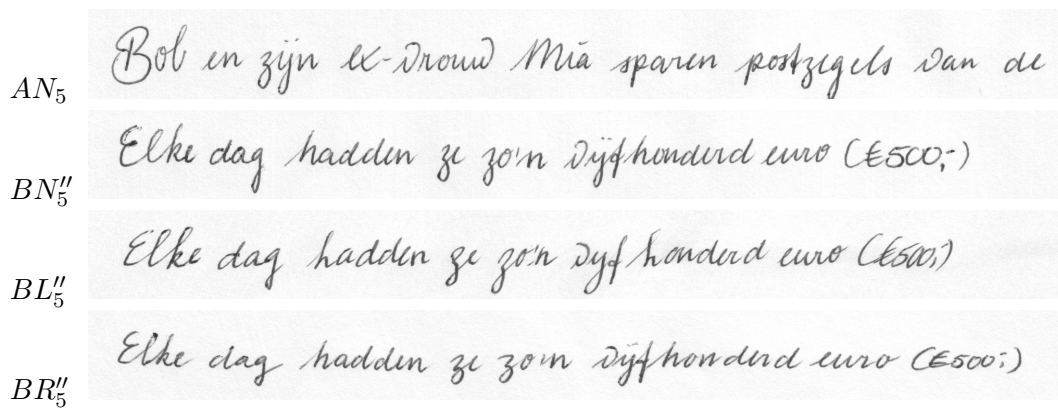 AN₅ Bob en zijn ex-vrouw Mia sparen postzegels van de
BN₅″ Elke dag hadden ze zo'n vijfhonderd euro (€500,-)
BL₅″ Elke dag hadden ze zo'n vijfhonderd euro (€500,-)
BR₅″ Elke dag hadden ze zo'n vijfhonderd euro (€500,-)